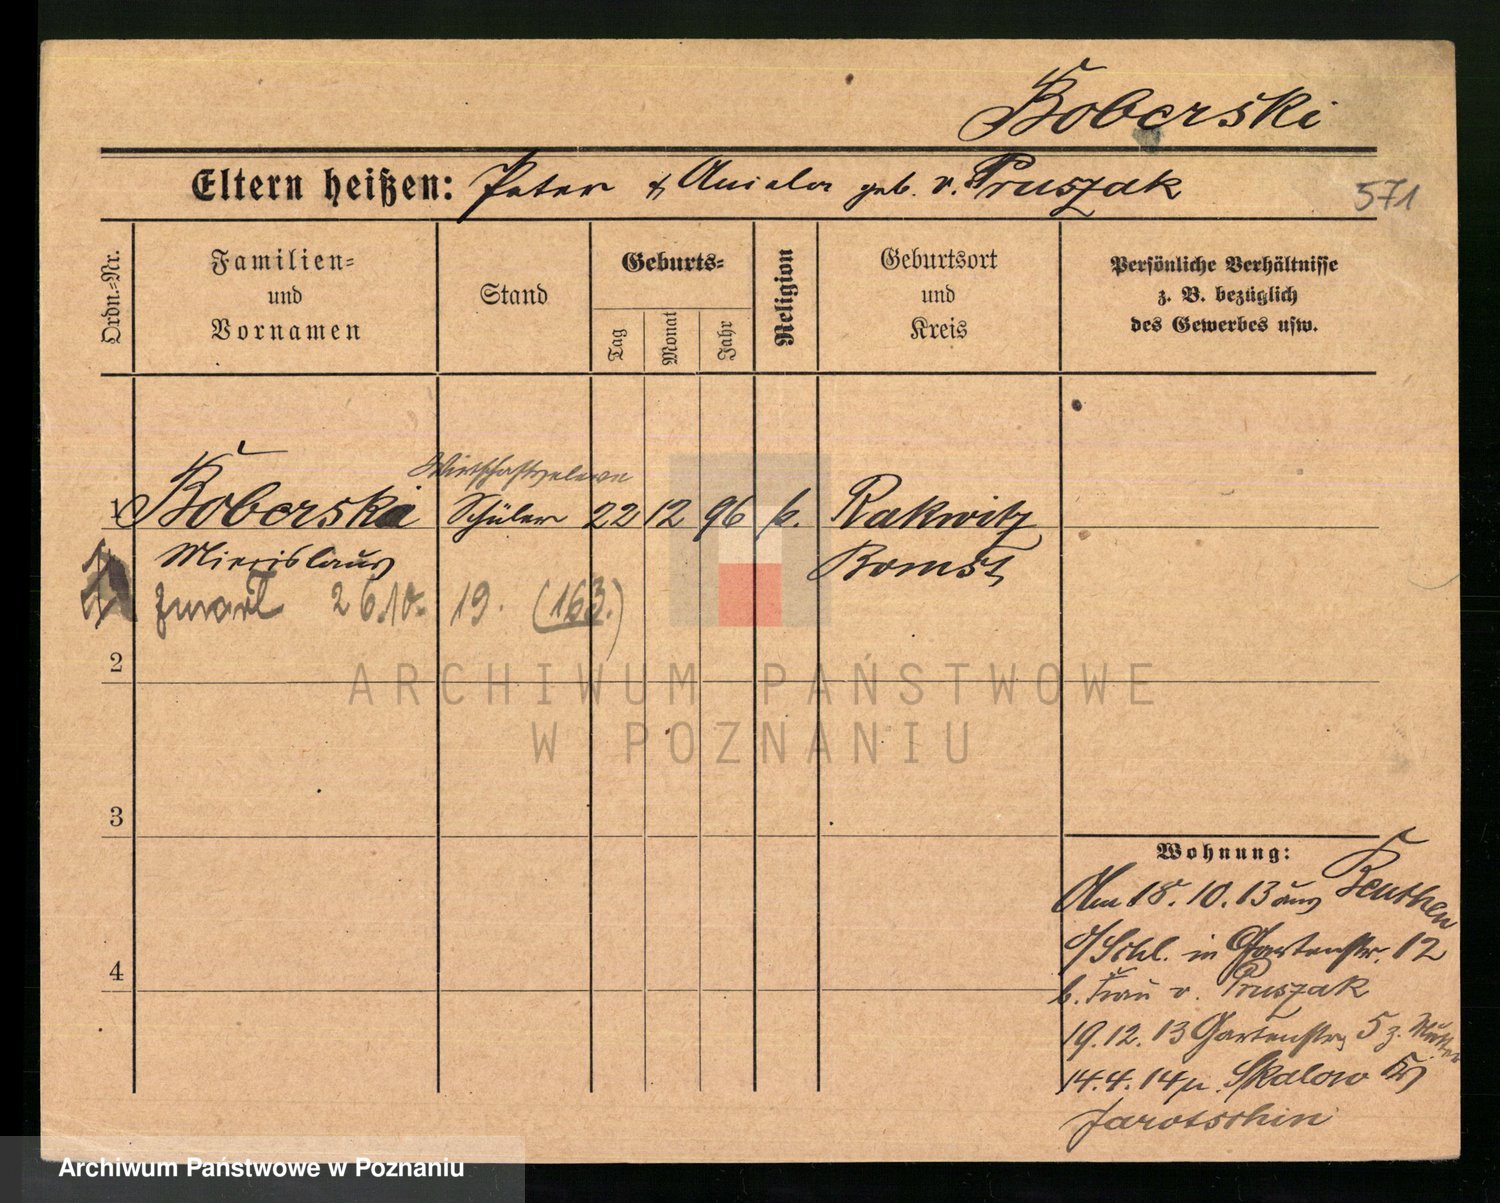 Boberski
Eltern heißen: Peter & Aniela geb. v. Pruszak
571
Ordn.-Nr.
Familien-
und
Vornamen
Stand
Geburts-
Tag
Monat
Jahr
Religion
Geburtsort
und
Kreis
Persönliche Verhältnisse
z. B. bezüglich
des Gewerbes usw.
Wirtschaftseleve
1 Boberski Schüler 22 12 96 k. Rakwitz
Miecislaus Bomst
26.10. 19. (163.)
2
3
4
Wohnung:
Am 18. 10. 13 aus Beuthen
o/Schl. in Gartenstr. 12
b. Frau v. Pruszak
19.12. 13 Gartenstr. 5 z. Mutter
14.4.14 n. Skalow Kr
Jarotschin
ARCHIWUM PAŃSTWOWE
W POZNANIU
Archiwum Państwowe w Poznaniu